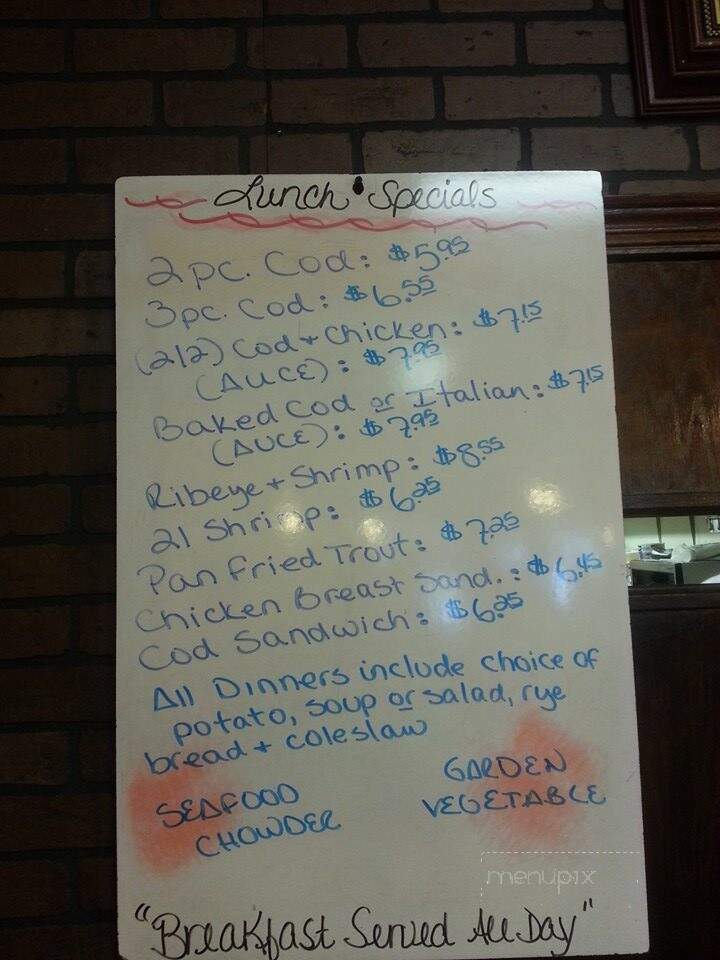 Lunch Specials
2pc. Cod: $5.95
3pc. Cod: $6.55
(2/2) Cod + Chicken: $7.15
(AUCE): $7.95
Baked Cod or Italian: $7.15
(AUCE): $7.95
Ribeye + Shrimp: $8.55
21 Shrimp: $6.25
Pan Fried Trout: $7.25
Chicken Breast Sand.: $6.45
Cod Sandwich: $6.25
All Dinners include choice of
potato, soup or salad, rye
bread + coleslaw
SEAFOOD
CHOWDER
GARDEN
VEGETABLE
menupix
"Breakfast Served All Day"